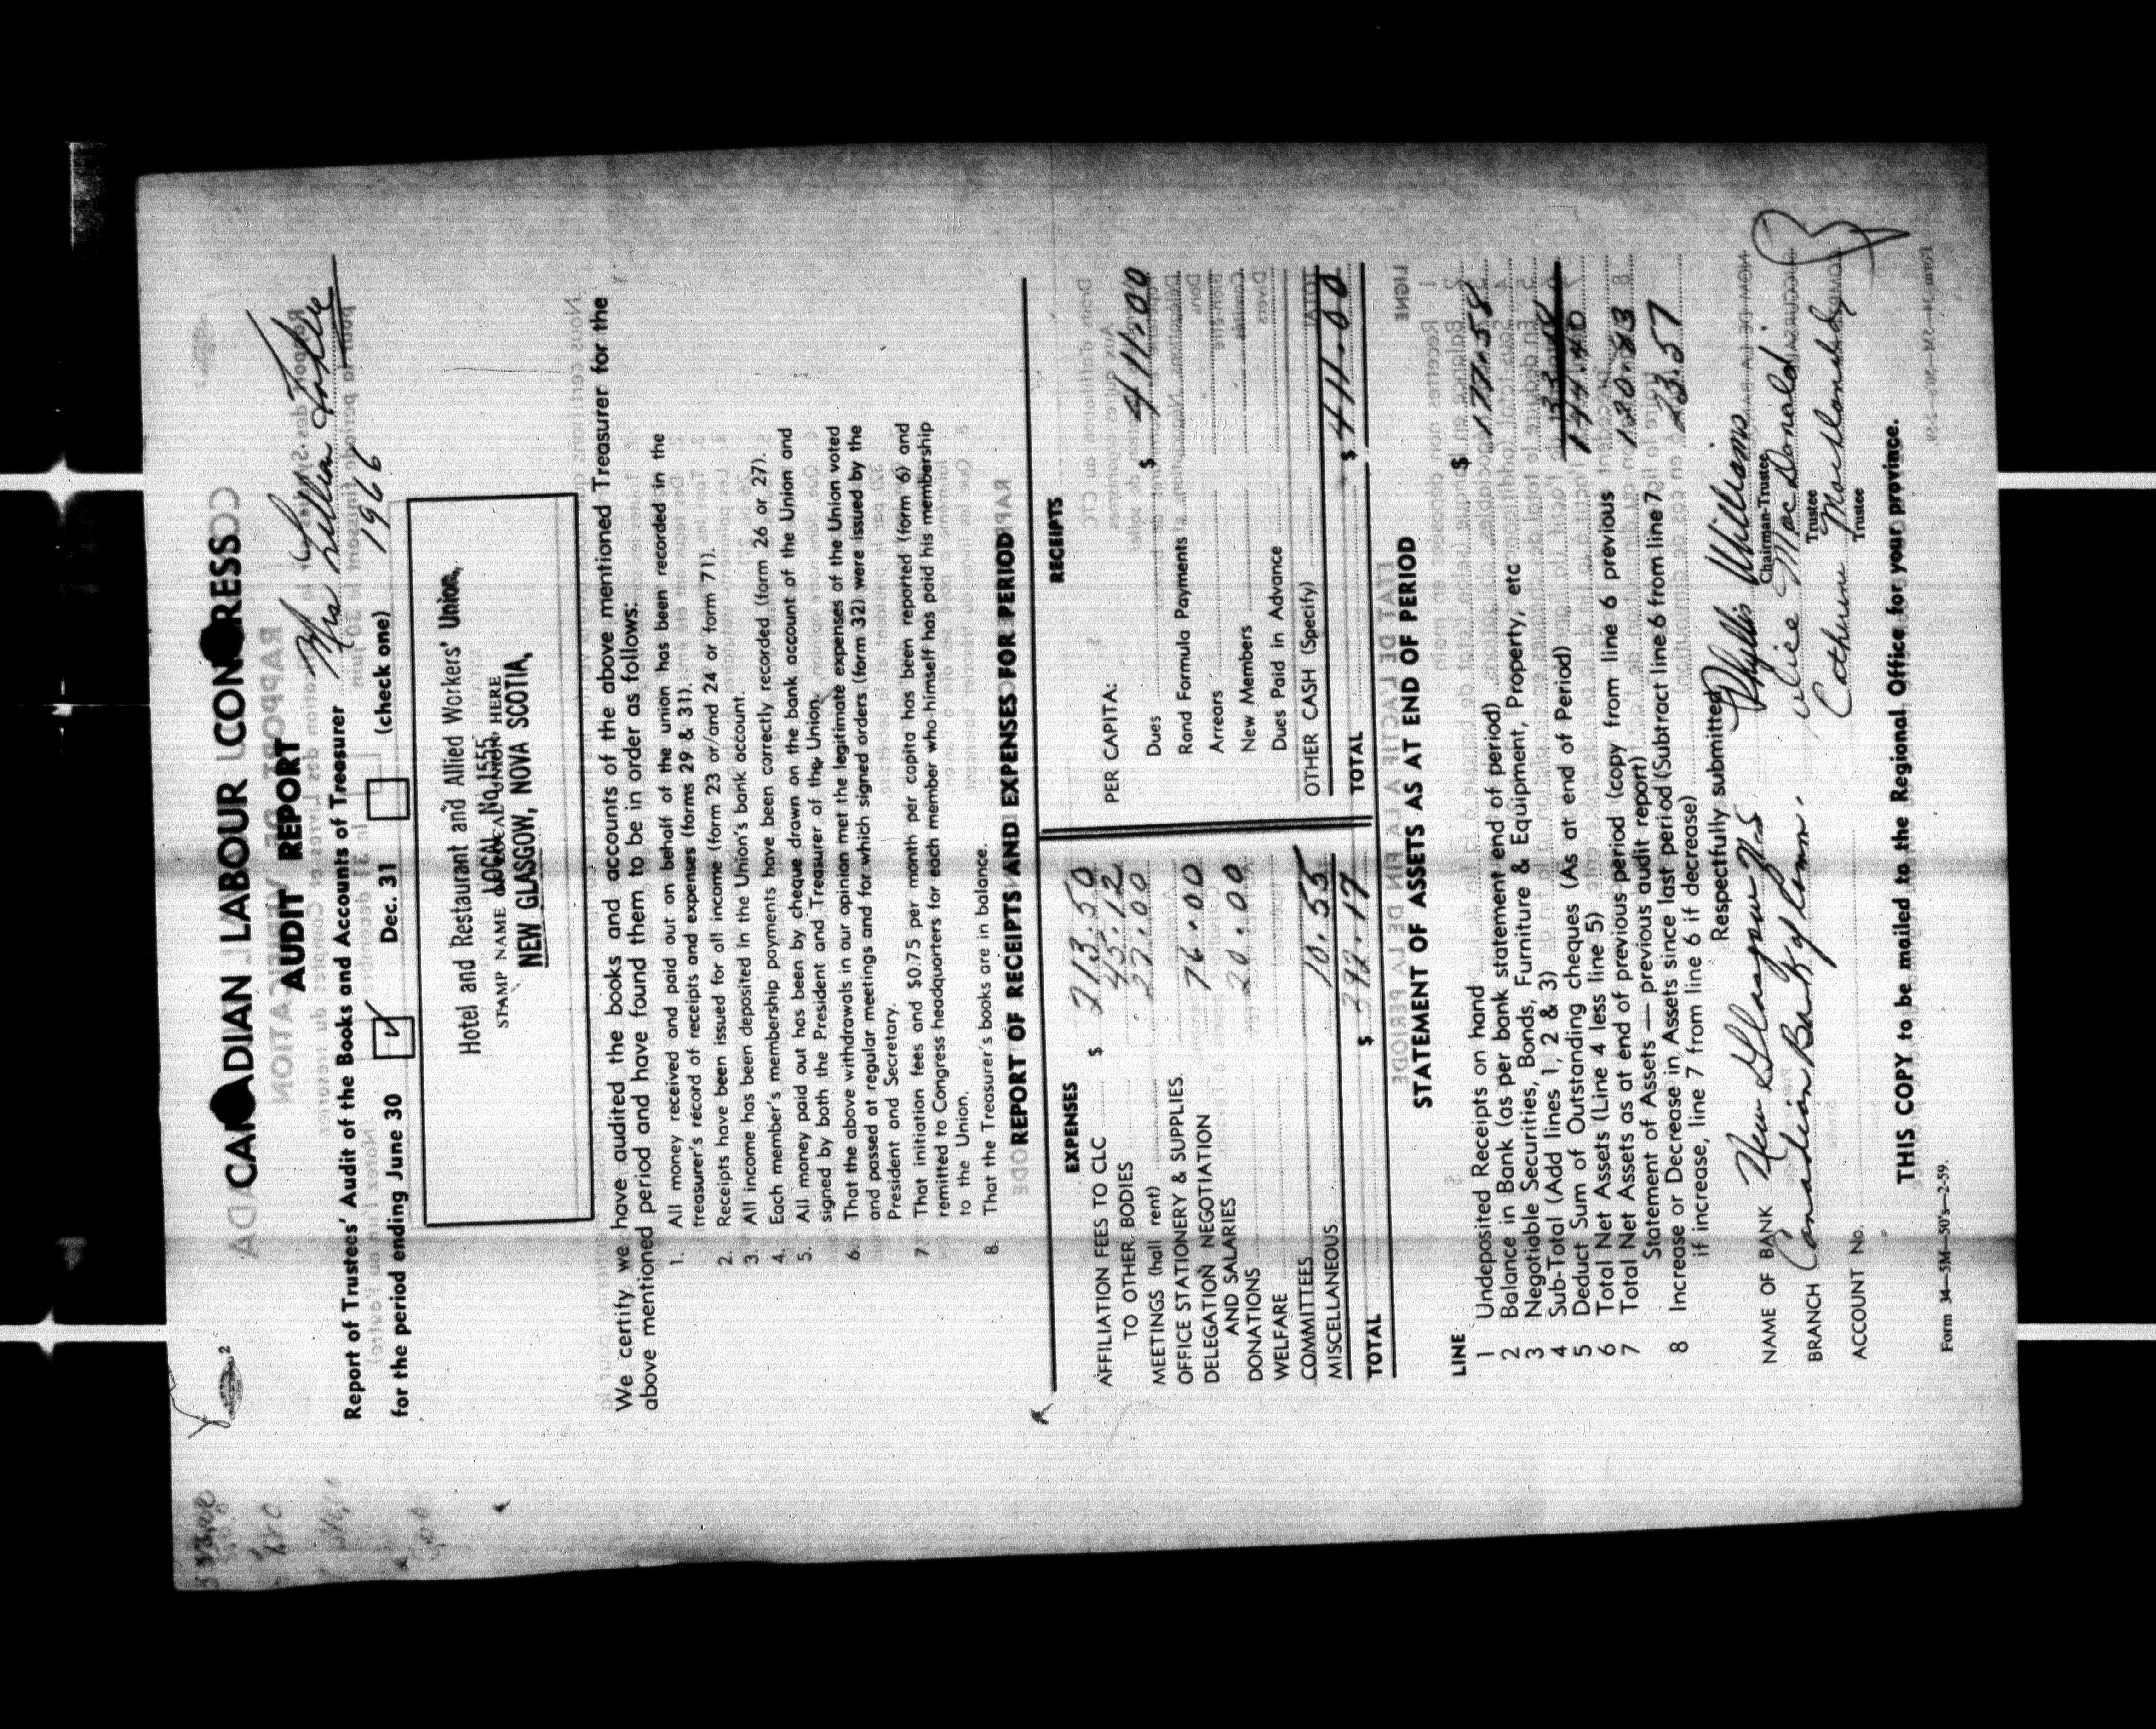 CANADIAN LABOUR CONGRESS
AUDIT REPORT
Report of Trustees' Audit of the Books and Accounts of Treasurer Mrs Lillian
for the period ending June 30 ✓ Dec. 31 (check one) 1966
Hotel and Restaurant and Allied Workers' Union,
LOCAL No. 1555
STAMP NAME OF LOCAL UNION HERE
NEW GLASGOW, NOVA SCOTIA,
We certify we have audited the books and accounts of the above mentioned Treasurer for the
above mentioned period and have found them to be in order as follows:
1. All money received and paid out on behalf of the union has been recorded in the
treasurer's record of receipts and expenses (forms 29 & 31).
2. Receipts have been issued for all income (form 23 or/and 24 or form 71).
3. All income has been deposited in the Union's bank account.
4. Each member's membership payments have been correctly recorded (form 26 or 27).
5. All money paid out has been by cheque drawn on the bank account of the Union and
signed by both the President and Treasurer of the Union.
6. That the above withdrawals in our opinion met the legitimate expenses of the Union voted
and passed at regular meetings and for which signed orders (form 32) were issued by the
President and Secretary.
7. That initiation fees and $0.75 per month per capita has been reported (form 6) and
remitted to Congress headquarters for each member who himself has paid his membership
to the Union.
8. That the Treasurer's books are in balance.
REPORT OF RECEIPTS AND EXPENSES FOR PERIOD
EXPENSES
AFFILIATION FEES TO CLC $ 213.50
TO OTHER BODIES 45.12
MEETINGS (hall rent) 27.00
OFFICE STATIONERY & SUPPLIES
DELEGATION NEGOTIATION 76.00
AND SALARIES
DONATIONS 20.00
WELFARE
COMMITTEES
MISCELLANEOUS 10.55
TOTAL $ 392.17
RECEIPTS
PER CAPITA:
Dues $ 411.00
Rand Formula Payments
Arrears
New Members
Dues Paid in Advance
OTHER CASH (Specify)
TOTAL $ 411.00
STATEMENT OF ASSETS AS AT END OF PERIOD
LINE
1 Undeposited Receipts on hand $
2 Balance in Bank (as per bank statement end of period) 177.58
3 Negotiable Securities, Bonds, Furniture & Equipment, Property, etc
4 Sub-Total (Add lines 1, 2 & 3)
5 Deduct Sum of Outstanding cheques (As at end of Period)
6 Total Net Assets (Line 4 less line 5) 144.40
7 Total Net Assets as at end of previous period (copy from line 6 previous
Statement of Assets — previous audit report) 120.83
8 Increase or Decrease in Assets since last period (Subtract line 6 from line 7
if increase, line 7 from line 6 if decrease) 23.57
Respectfully submitted,
NAME OF BANK New Glasgow N.S. Phyllis Williams
Chairman-Trustee
BRANCH Canadian Bank of Comm. Alice MacDonald
Trustee
ACCOUNT No. Catherine
Trustee
THIS COPY to be mailed to the Regional Office for your province.
Form 34—5M—50's—2-59.